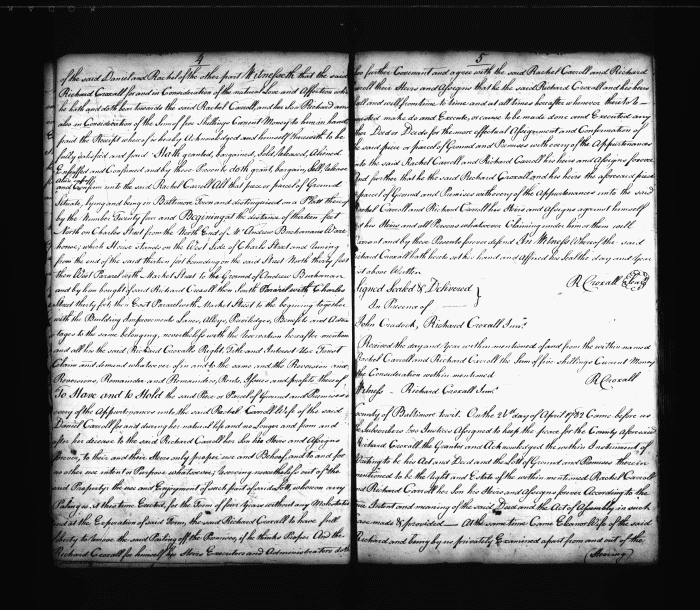 4
of the said Daniel and Rachel of the other part Witnesseth that the said
Richard Croxall for and in Consideration of the natural love and Affection which
he hath and doth bear towards the said Rachel Carroll and her Son Richard and
also in Consideration of the Sum of five Shillings Current Money to him in hand
paid the Receipt whereof is hereby Acknowledged and himself therewith to be
fully satisfied and paid Hath granted, bargained, Sold, released, Aliened
Enfeoffed and Confirmed and by these Presents doth grant, bargain, Sell, release
alien enfeoff
and Confirm unto the said Rachel Carroll All that piece or parcel of Ground
Situate, lying and being in Baltimore Town and distinguished on a Platt thereof
by the Number Twenty five and Beginning at the distance of thirteen feet
North on Charles Street from the North End of Mr Andrew Buchanans Ware
house; which House stands on the West Side of Charles Street and running
from the end of the said thirteen feet bounding on the said Street North thirty feet
then West Paralel with Market Street to the Ground of Andrew Buchanan
and by him bought of said Richard Croxall then South Paralel with Charles
Street thirty feet then East Paralel with Market Street to the begining together
with the Building Improvements Lanes, Alleys, Priviledges, Benefits and Advan
tages to the same belonging, nevertheless with the reservation hereafter mention
and all his the said Richard Croxalls Right, Title and Interest Use Trust
Claim and demand whatsoever of in and to the same and the Reversion and
Reversions, Remainder and Remainders, Rents, Issues and profits thereof
To Have and to Hold the said Piece or Parcel of Ground and Premises &
every of the Appurtenances unto the said Rachel Carroll Wife of the said
Daniel Carroll for and during her natural life and no longer and from and
after her decease to the said Richard Carroll her Son his Heirs and Assigns
forever, to their and their Heirs only proper use and Behoof, and to and for
no other use intent or Purpose whatsoever; Reserving nevertheless out of the
said Property the use and Enjoyment of such part of said Lott, whereon any
Paling is at this time Erected, for the Term of four Years without any Molestation
and at the Expiration of said Term, the said Richard Croxall to have full
liberty to remove the said Pailing off the Premises, if he thinks Proper And the
Richard Croxall for himself his Heirs Executors and Administrators doth
5
further Covenant and agree with the said Rachel Carroll and Richard
their Heirs and Assigns that he the said Richard Croxall and his heirs
and will from time to time and at all times hereafter whenever thereto
make do and Execute, or cause to be made done and Executed any
other Deed or Deeds for the more effectual Assignment and Confirmation of
the said piece or parcel of Ground and Premises with every of the Appurtenances
to the said Rachel Carroll and Richard Carroll his heirs and Assigns forever
And further that he the said Richard Croxall and his heirs the aforesaid piece
parcel of Ground and Premises with every of the Appurtenances unto the said
Rachel Carroll and Richard Carroll his Heirs and Assigns against himself
his Heirs and all Persons whatsoever Claiming under him or them will
Warrant and by these Presents forever defend In Witness Whereof the said
Richard Croxall hath hereto set his hand and affixed his Seal the day and Year
above Written
Signed Sealed & Delivered
In Presence of
R Croxall (Seal)
John Cradock, Richard Croxall Junr.
Received the day and Year within mentioned of and from the within named
Rachel Carroll and Richard Carroll the Sum of five shillings Current Money
the Consideration within mentioned
R Croxall
Witness - Richard Croxall Junr.
County of Baltimore towit. On the 26th day of April 1782 Came before us
the Subscribers two Justices Assigned to keep the peace for the County aforesaid
Richard Croxall the Grantor and Acknowledged the within Instrument of
Writing to be his Act and Deed and the Lott of Ground and Premises therein
mentioned to be the Right and Estate of the within mentioned Rachel Carroll
and Richard Carroll her Son his Heirs and Assigns forever According to the
Intent and meaning of the said Deed and the Act of Assembly in such
are made & provided — At the same time Came Eleanor Wife of the said
Richard and being by us privately Examined apart from and out of the
(Hearing)